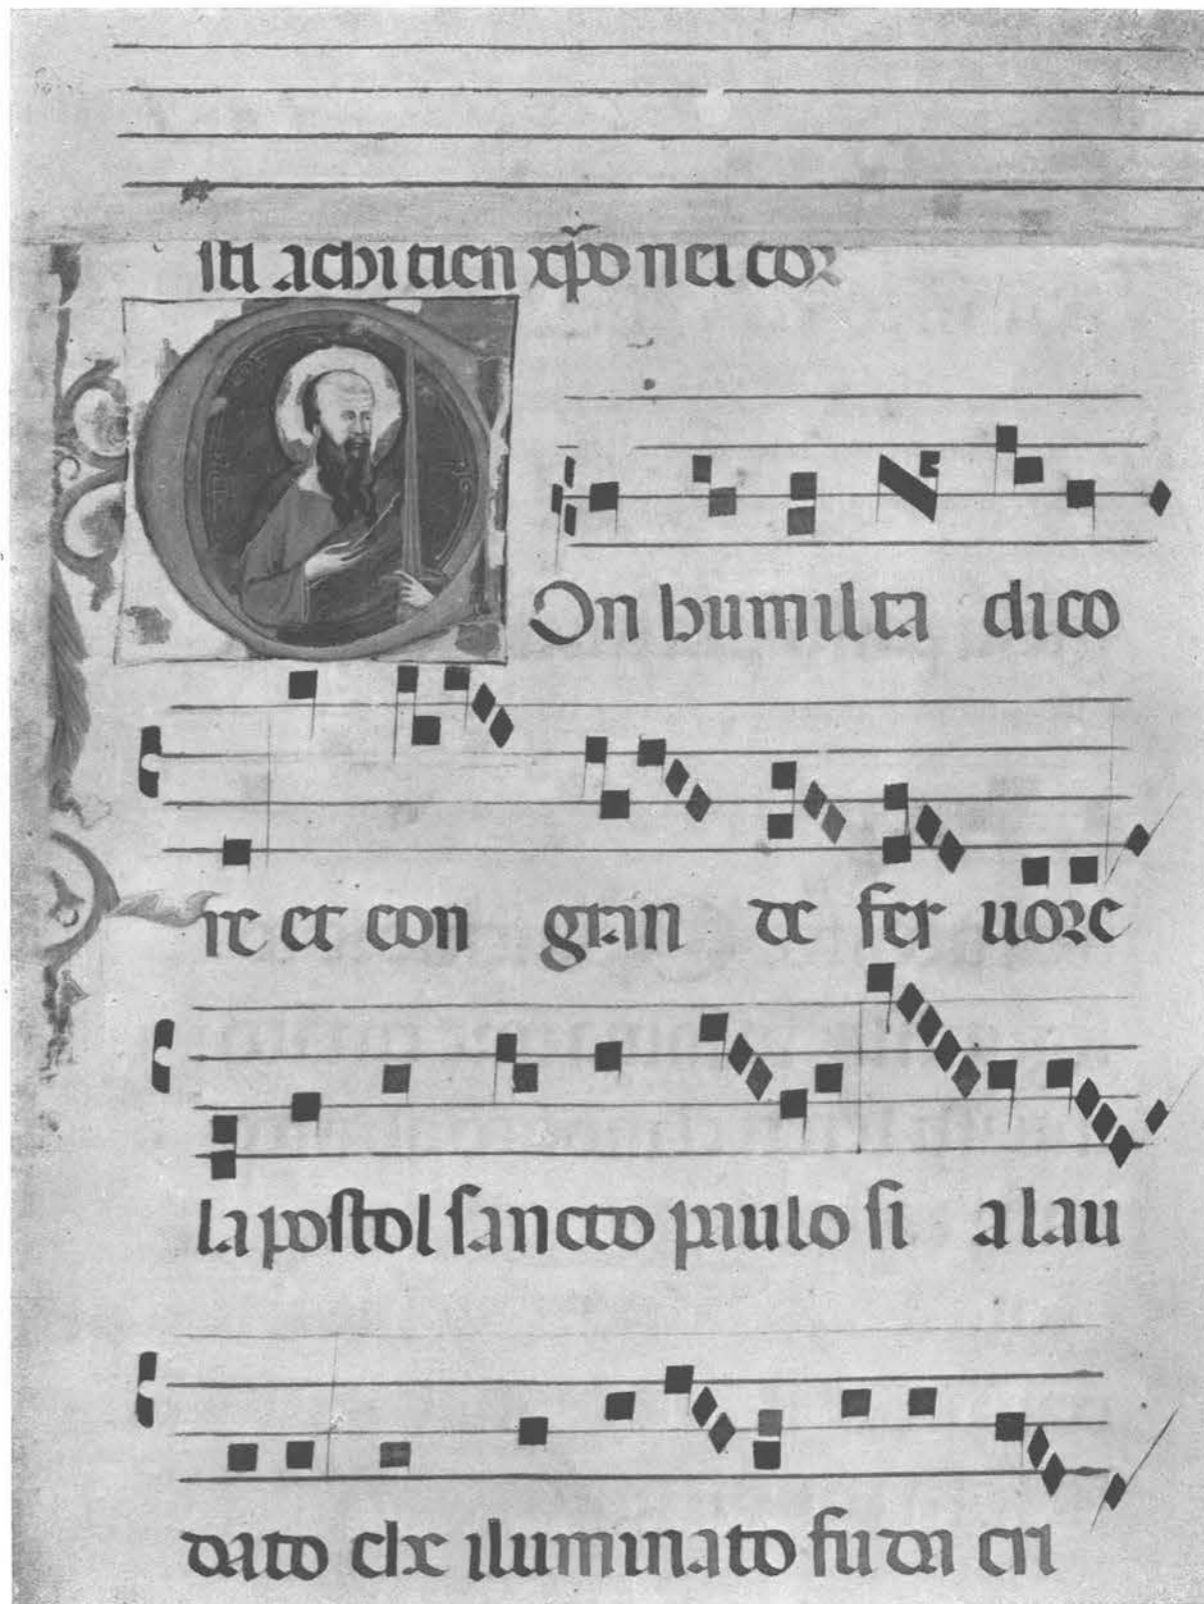 sti achi tien xp̄o nei cor
COn humilta dico
re et con gran de fer uore
la postol sancto paulo si a lau
dato che iluminato fu da cri